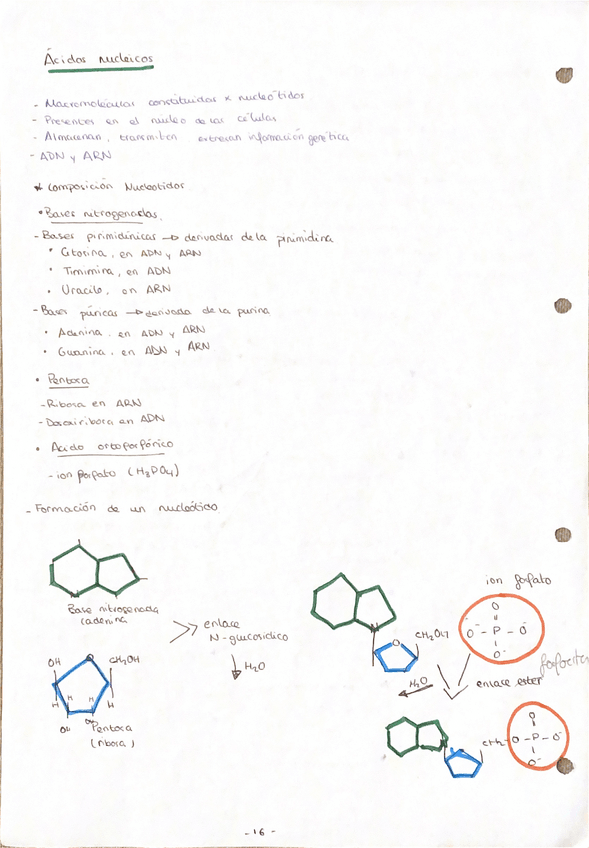 Ácidos nucleicos
- Macromoléculas constituidas x nucleótidos
- Presentes en el nucleo de las células
- Almacenan, transmiten extresan información genética
- ADN y ARN
* Composición Nucleotidos
• Bases nitrogenadas.
- Bases pirimidínicas → derivadas de la pirimidina
• Citosina, en ADN y ARN
• Timimina, en ADN
• Uracilo, en ARN
- Bases púricas → derivada de la purina
• Adenina, en ADN y ARN
• Guanina, en ADN y ARN
• Pentosa
- Ribosa en ARN
- Desoxiribosa en ADN
• Acido ortofosfórico
- ion fosfato (H3PO4)
- Formación de un nucleótido
Base nitrogenada
(adenina
enlace
N-glucosídico
H2O
OH
O
CH2OH
H
H
H
H
OH
OH
Pentosa
(ribosa)
ion fosfato
N
O
CH2OH
O
O⁻ - P - O⁻
O⁻
H2O
enlace ester
N
CH2
O
O - P - O⁻
O⁻
- 16 -